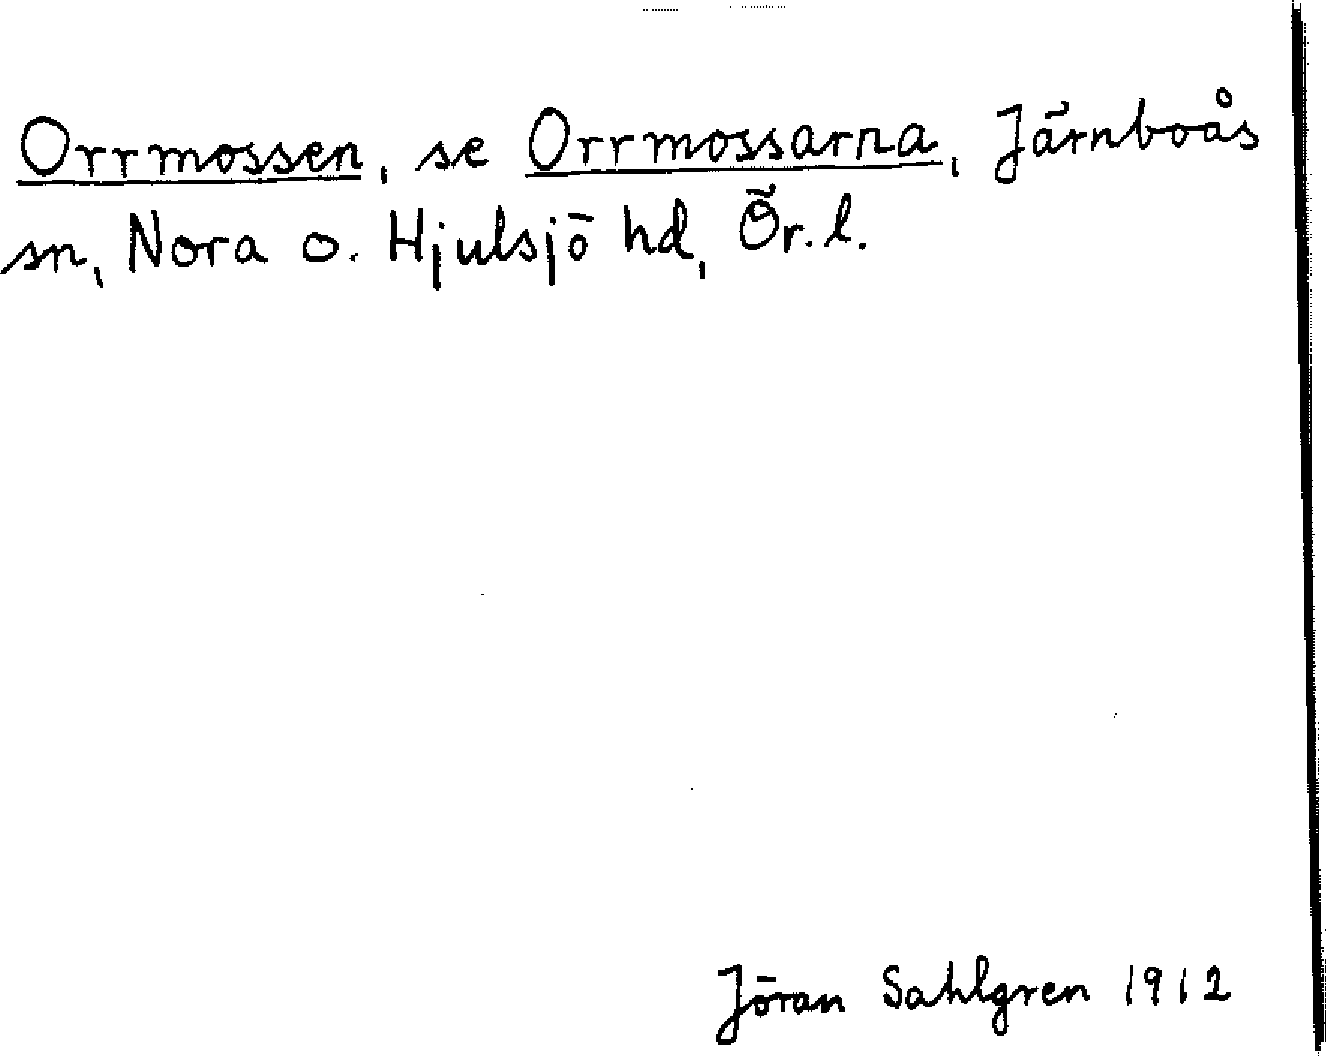 Orrmossen, se Orrmossarna, Järnboås
sn, Nora o. Hjulsjö hd, Ör.l.
Jöran Sahlgren 1912